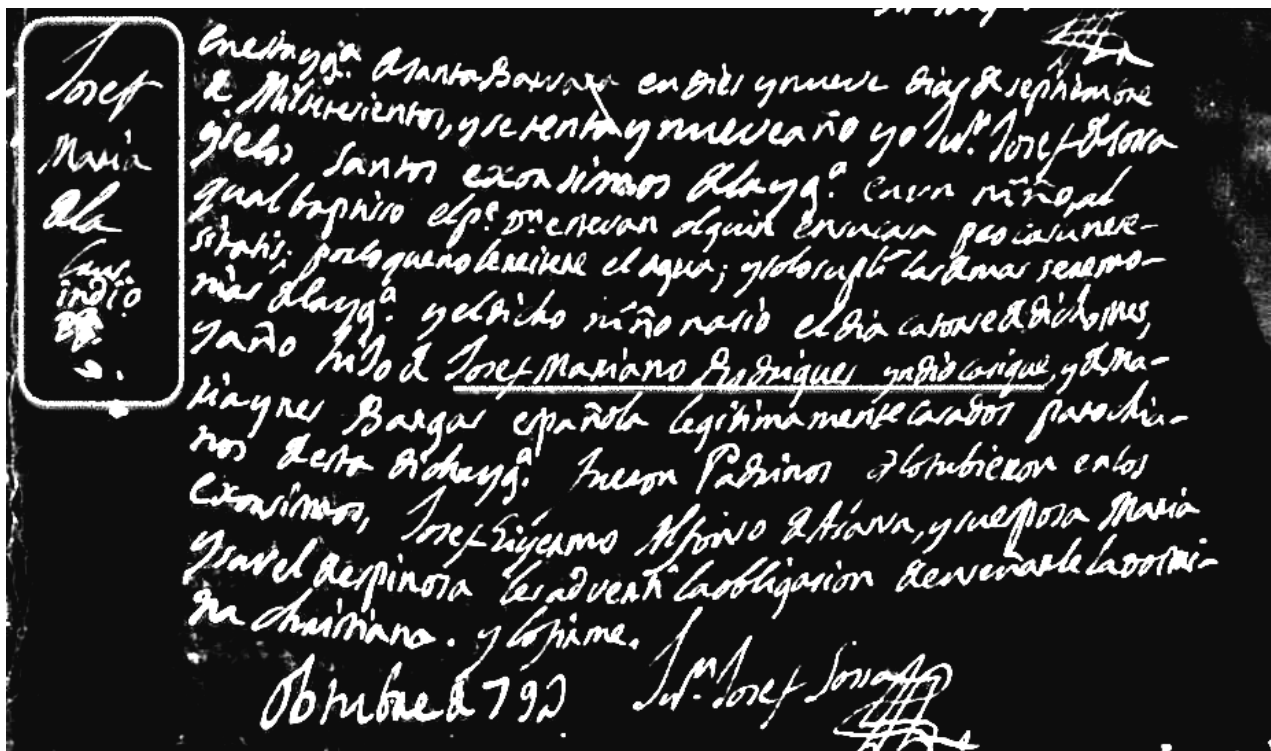 Josef
Maria
de la
Cruz
indio
en esta ygª de santa Barvara en dies y nueve dias de septiembre
de Mil setesientos, y setenta y nueve año yo Juº Josef de Sossa
y selos santos exorsismos de la ygª en un niño, al
qual baptiso el pe Dn estevan olguin en su casa pro casu nese-
sitatis; por lo que no le reitere el agua; y solo supli las demas seremo-
nias de la ygª y el dicho niño nasio el dia catorse de dicho mes,
y año hijo de Josef Mariano Rodrigues yndio casique, y de Ma-
ria ynes Bargas española legitimamente casados parochia-
nos de esta dicha ygª fueron Padrinos de lo tubieron en los
exorsismos, Josef Giyermo Alfonso de Asava, y su esposa Maria
Ysavel de espinosa les adverti la obligasion de enseñarle la dotri-
na christiana. y lo firme.
Juº Josef Sossa
Obtubre de 79